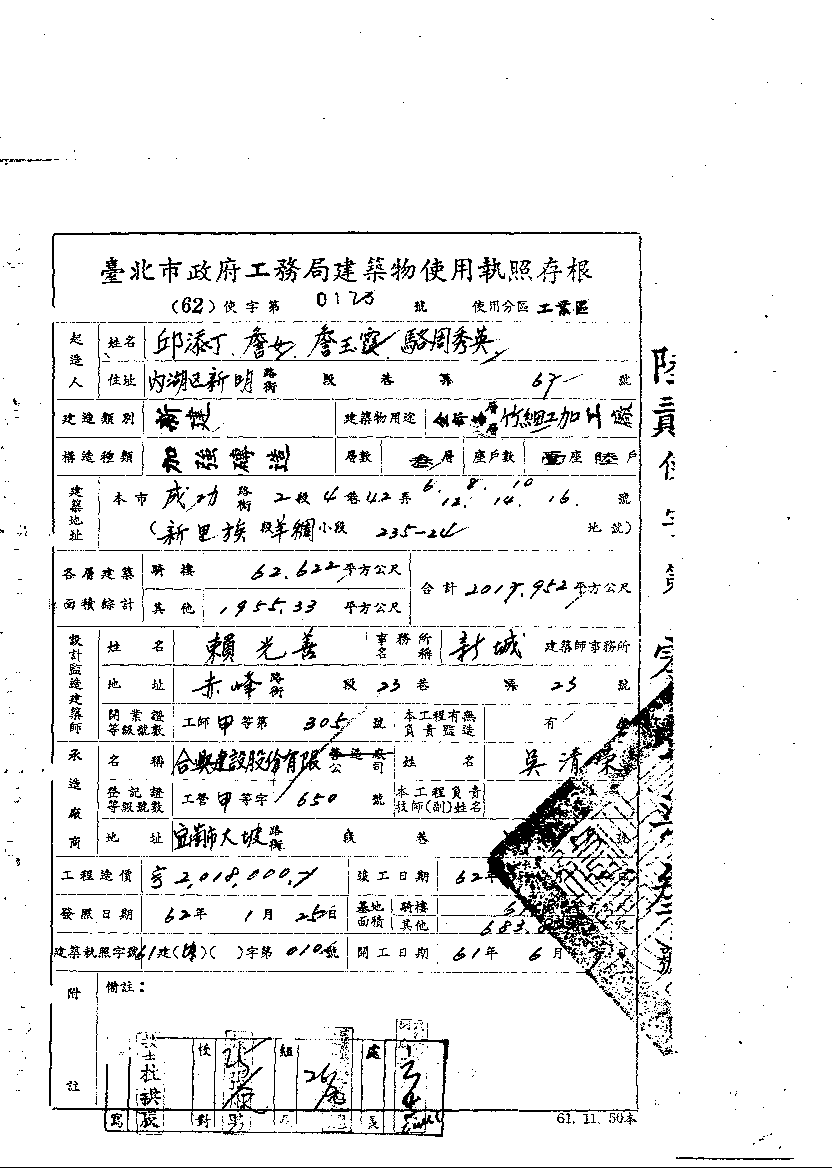 臺北市政府工務局建築物使用執照存根
(62) 使字第 0173 號 使用分區 工業區
起造人 姓名 邱添丁、詹女、詹玉霞、駱周秀英
住址 內湖區新明路街 段 巷 弄 67 號
建造類別 新建 建築物用途 竹細工加工廠
構造種類 加強磚造 層數 叁層 座戶數 壹座陸戶
建築地址 本市 成功路街 2段4巷42弄 6. 8. 10 12. 14. 16. 號
(新里族段羊稠小段 235-24 地號)
各層建築面積綜計 騎樓 62.622平方公尺 合計 2017.952平方公尺
其他 1955.33 平方公尺
設計監造建築師 姓名 賴光善 事務所名稱 新城 建築師事務所
地址 赤峰路街 段 23巷 弄 23 號
開業證等級號數 工師甲等第 305 號 本工程有無負責監造 有
承造廠商 名稱 合興建設股份有限公司 姓名 吳清
登記證等級號數 工營甲等字 650 號 本工程負責技師(副)姓名
地址 宜蘭市大坡路街 段 巷 號
工程造價 2,018,000. 竣工日期 62年
發照日期 62年 1月 25日 基地面積 騎樓
其他 683.
建築執照字號 61建( )( )字第 010 號 開工日期 61年 6月
附註 備註：
校對 組 處長
61. 11. 50本